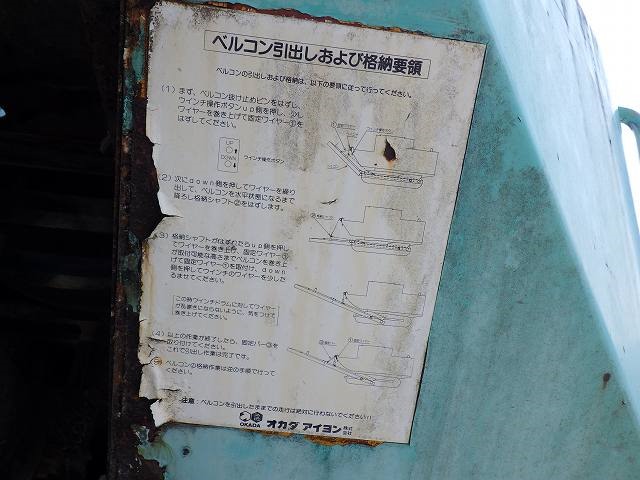 ベルコン引出しおよび格納要領
ベルコンの引出しおよび格納は、以下の要領に従って行ってください。
(1) まず、ベルコン抜け止めピンをはずし、
ウインチ操作ボタンup側を押し、少し
ワイヤーを巻き上げて固定ワイヤー①を
はずしてください。
UP
DOWN
ウインチ操作ボタン
(2) 次にdown側を押してワイヤーを繰り
出して、ベルコンを水平状態になるまで
降ろし格納シャフト②をはずします。
3) 格納シャフトがはずれたらup側を押し
てワイヤーを巻き上げ、固定ワイヤー①
が取付可能な高さまでベルコンを巻き上
げて固定ワイヤー①を取付け、down
側を押してウインチのワイヤーを少した
るませてください。
この時ウインチドラムに対してワイヤー
が乱巻きにならないように、気をつけて
巻き上げてください。
(4) 以上の作業が終了したら、固定バー③を
取り付けてください。
これで引出し作業は完了です。
ベルコンの格納作業は逆の手順で行って
ください。
注意:ベルコンを引出したままでの走行は絶対に行わないでください!!
OKADA オカダ アイヨン 株式会社